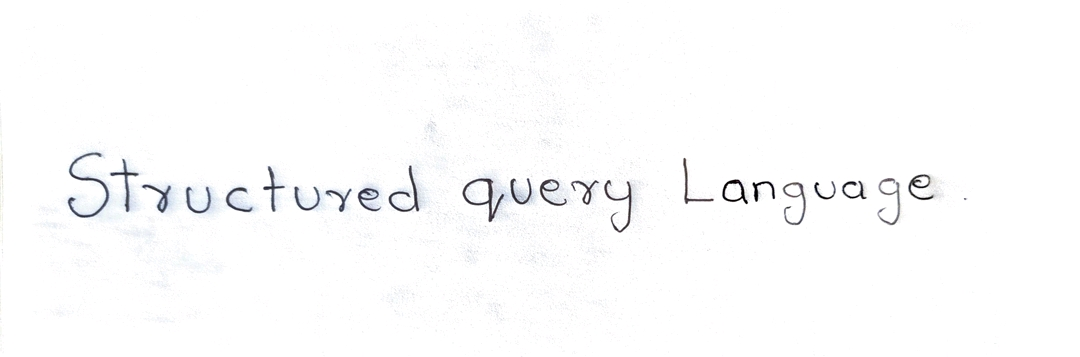 Structured query Language.